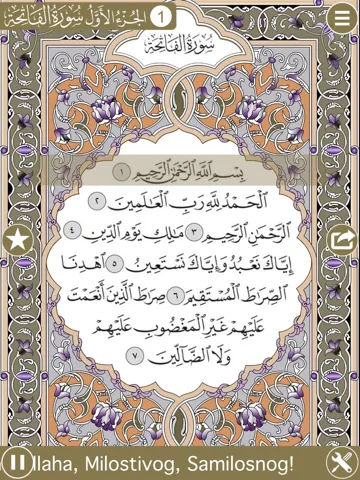 الجزء الأول سورة الفاتحة 1
سُورَةُ الفَاتِحَةِ
بِسْمِ ٱللَّهِ ٱلرَّحْمَٰنِ ٱلرَّحِيمِ ١
ٱلْحَمْدُ لِلَّهِ رَبِّ ٱلْعَٰلَمِينَ ٢
ٱلرَّحْمَٰنِ ٱلرَّحِيمِ ٣ مَٰلِكِ يَوْمِ ٱلدِّينِ ٤
إِيَّاكَ نَعْبُدُ وَإِيَّاكَ نَسْتَعِينُ ٥ ٱهْدِنَا
ٱلصِّرَٰطَ ٱلْمُسْتَقِيمَ ٦ صِرَٰطَ ٱلَّذِينَ أَنْعَمْتَ
عَلَيْهِمْ غَيْرِ ٱلْمَغْضُوبِ عَلَيْهِمْ
وَلَا ٱلضَّآلِّينَ ٧
llaha, Milostivog, Samilosnog!